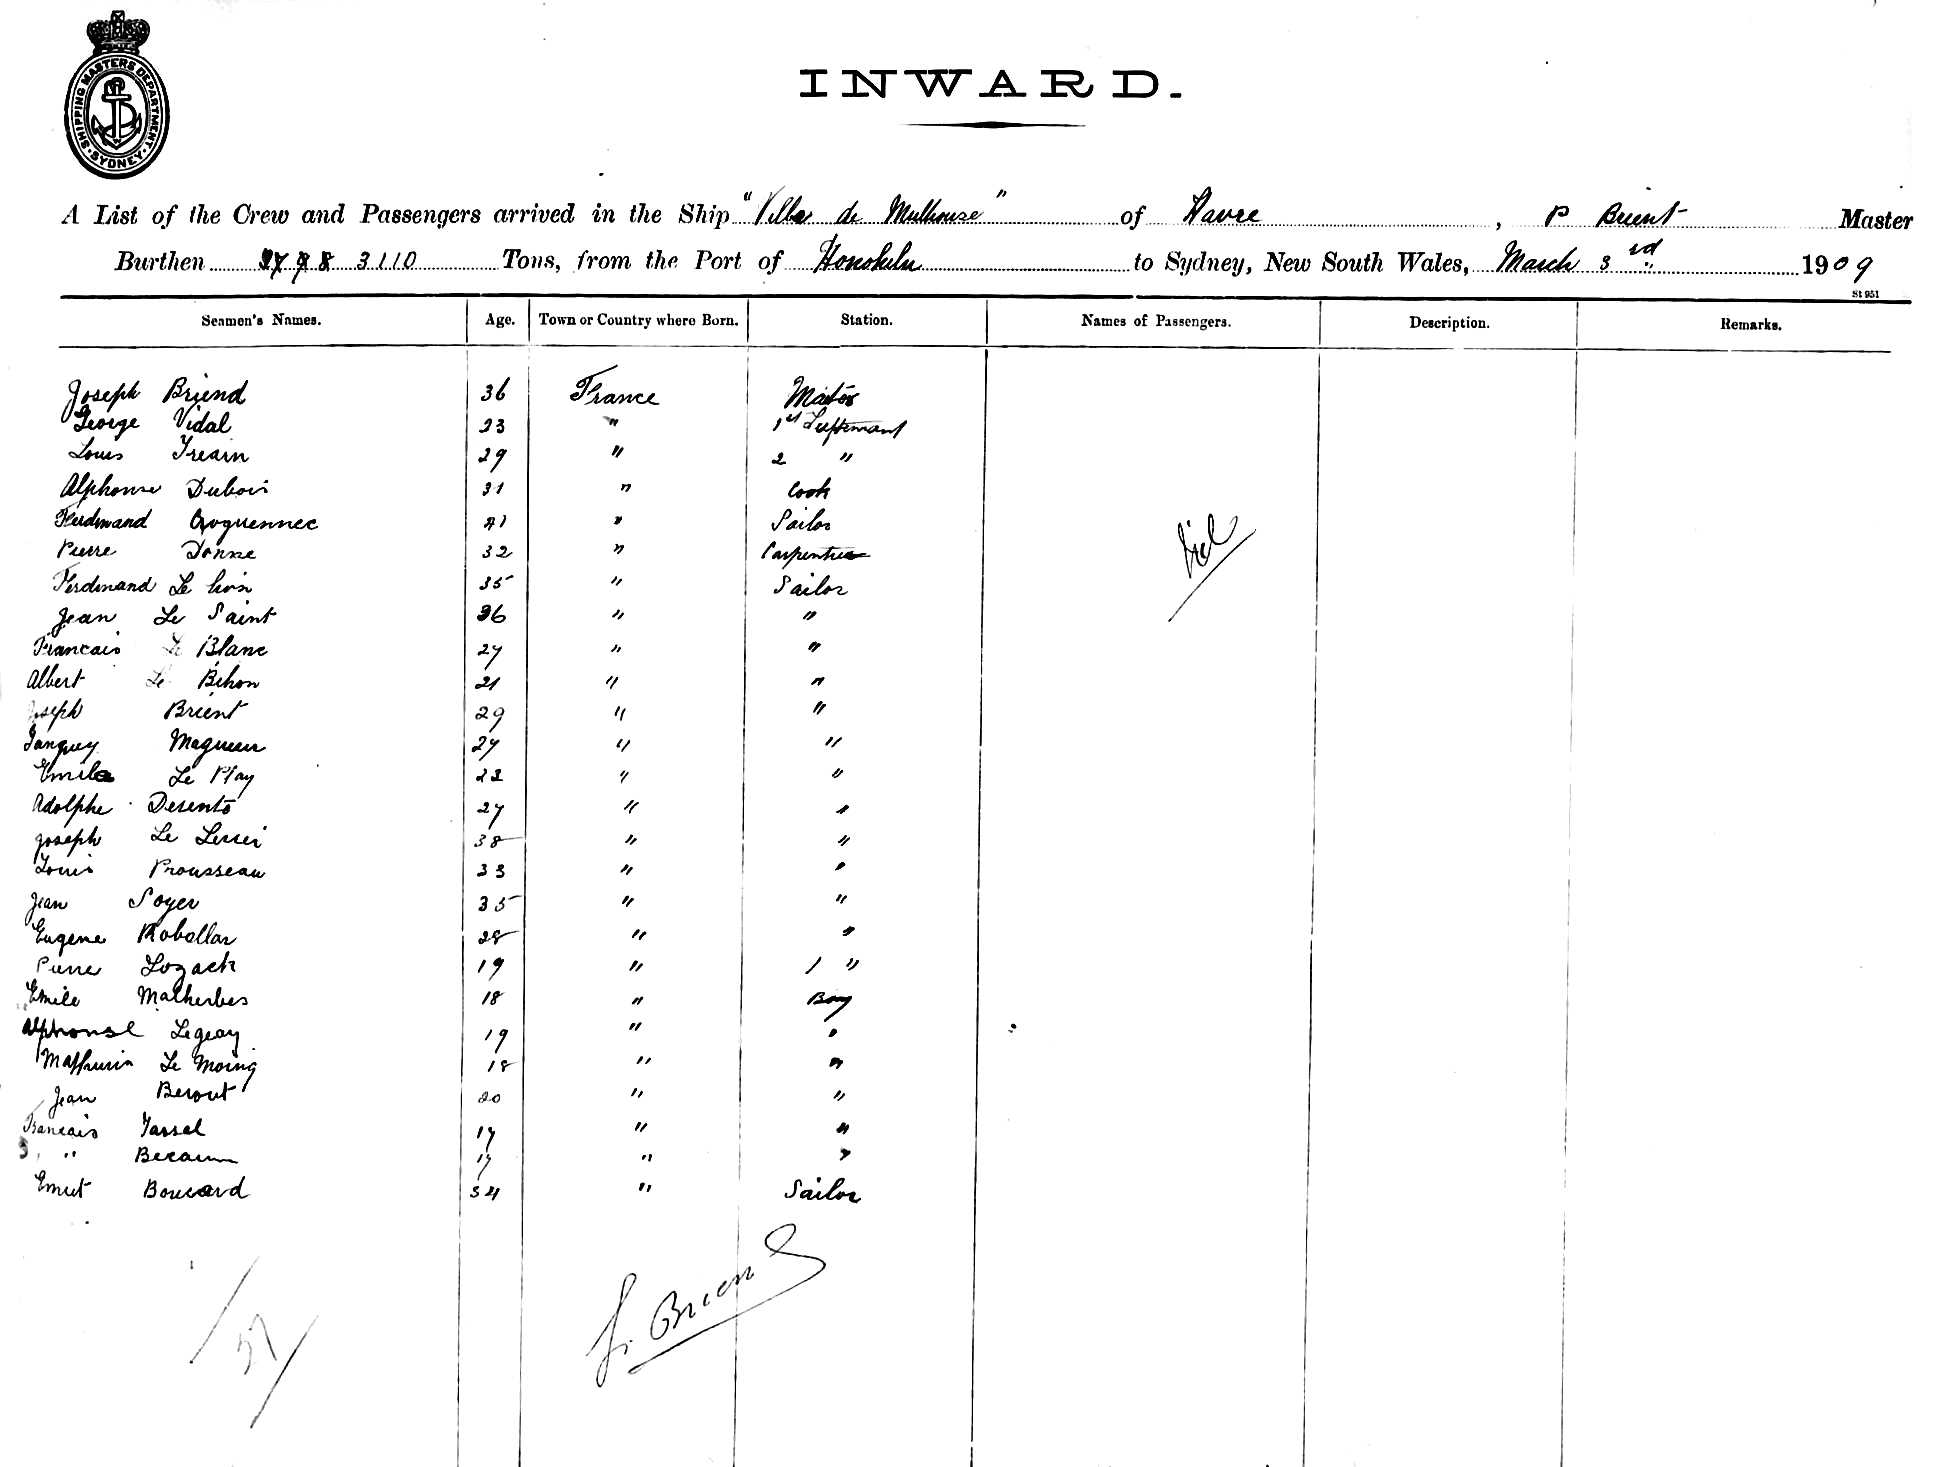 SHIPPING MASTERS DEPARTMENT
· SYDNEY ·
INWARD.
A List of the Crew and Passengers arrived in the Ship "Ville de Mulhouse" of Havre, P Brient Master
Burthen 3110 Tons, from the Port of Honolulu to Sydney, New South Wales, March 3rd 1909
St 951
Seamen's Names. Age. Town or Country where Born. Station. Names of Passengers. Description. Remarks.
Joseph Briend 36 France
George Vidal 23 " 1st
Louis 29 " 2 "
Alphonse Dubois 31 " Cook
Ferdinand " Sailor
Pierre Donne 32 " Carpenter
Ferdinand Le 35 " Sailor
Jean Le Saint 36 " "
Francais Le Blanc 27 " "
Albert Le Bihon 21 " "
Joseph Brient 29 " "
Tanguy 27 " "
Emile Le Play 22 " "
Adolphe Desento 27 " "
Joseph Le 38 " "
Louis Prousseau 33 " "
Jean Soyer 35 " "
Eugene Roballar 28 " "
Pierre Lozach 19 " "
Emile Malherbes 18 " Boy
Alphonse Legeay 19 " "
Mathurin Le Moing 18 " "
Jean Berout 20 " "
Francais Tassel 17 " "
" 17 " "
Boucard 34 " Sailor
J. Briend